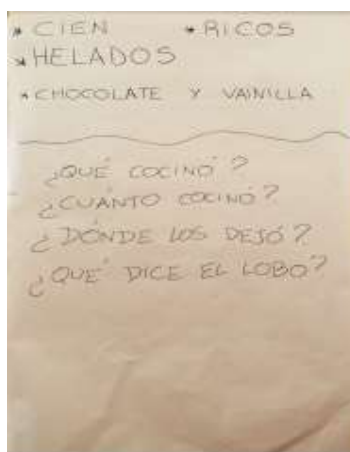 * CIEN * RICOS
* HELADOS
* CHOCOLATE Y VAINILLA
¿QUÉ COCINÓ?
¿CUÁNTO COCINÓ?
¿DÓNDE LOS DEJÓ?
¿QUÉ DICE EL LOBO?